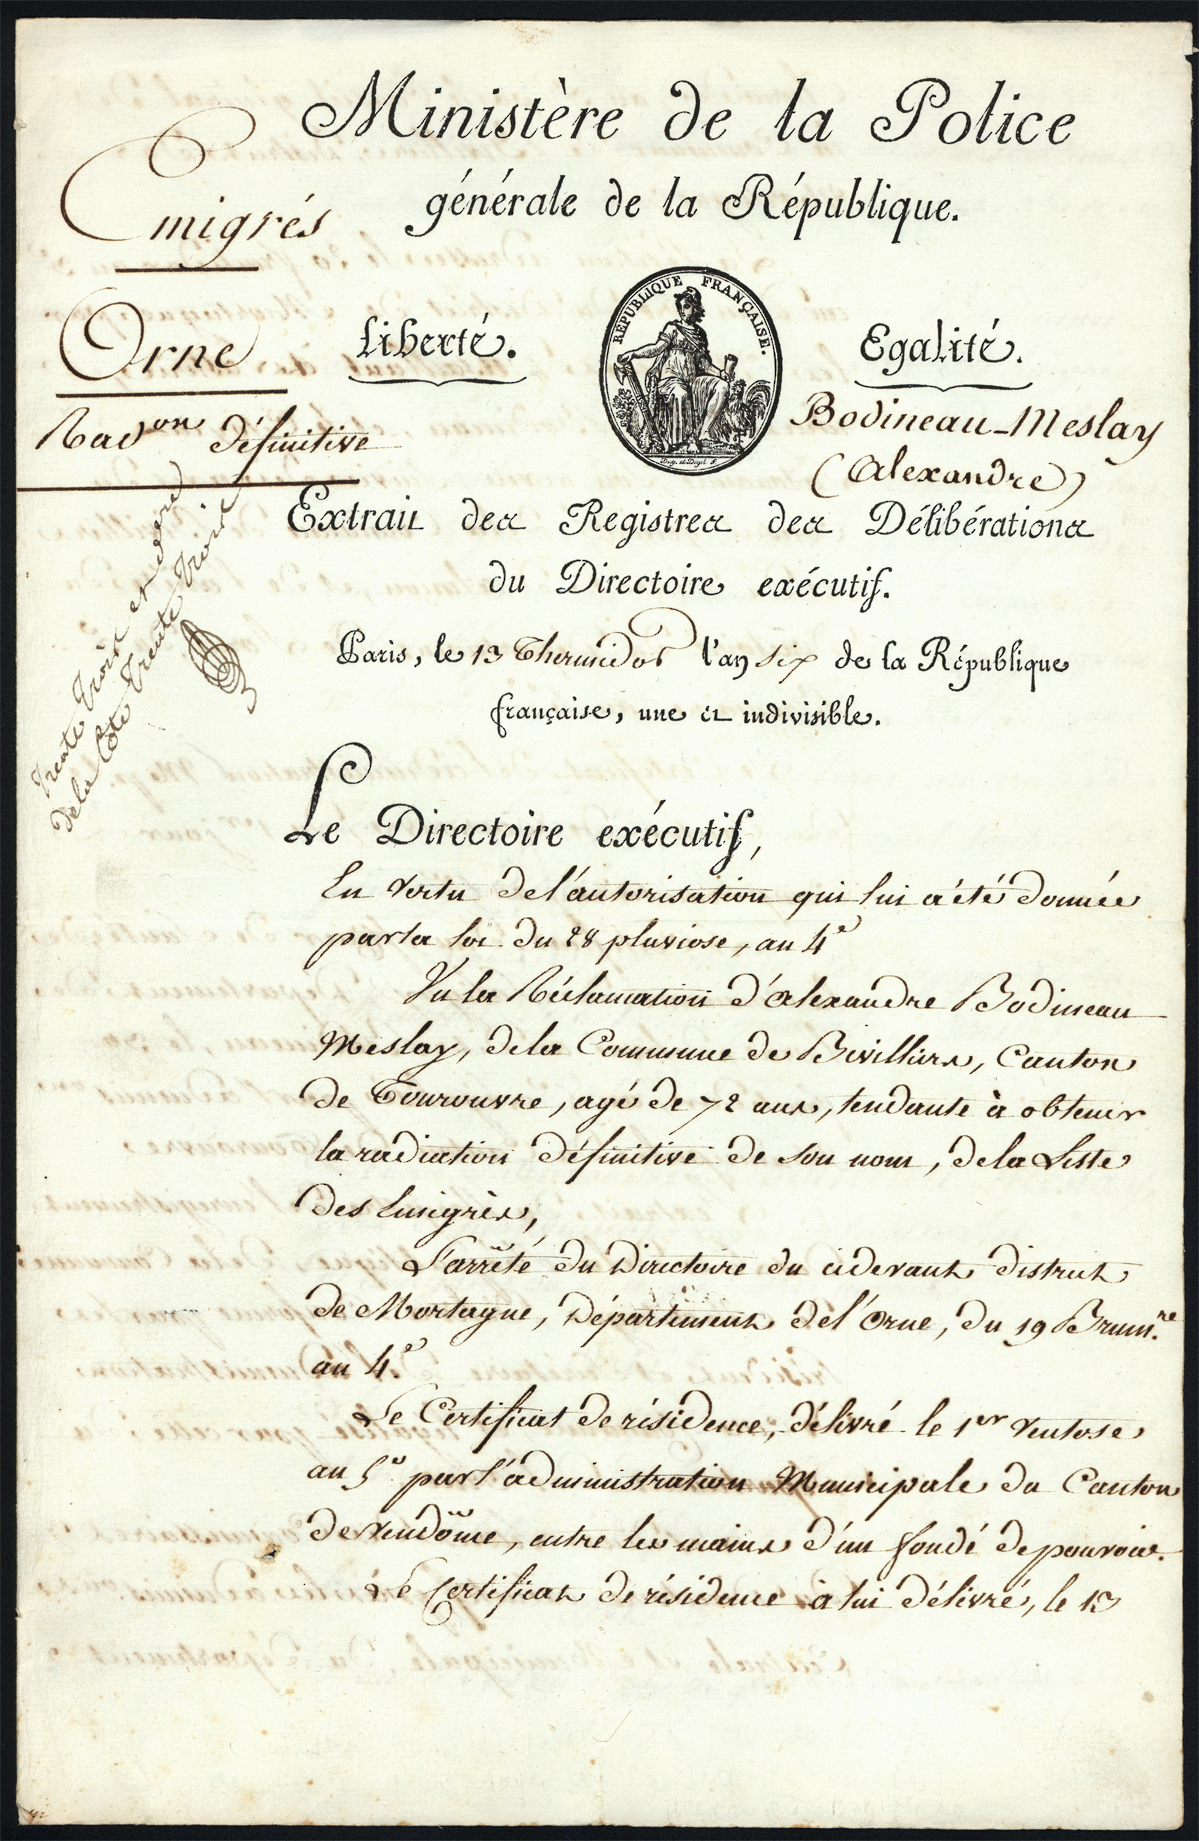 Ministère de la Police
générale de la République.
Emigrés
Orne
Rad.on définitive
Liberté.
RÉPUBLIQUE FRANÇAISE.
Egalité.
Bodineau-Meslay
(Alexandre)
Extrait des Registres des Délibérations
du Directoire exécutif.
Paris, le 13 Thermidor l'an six de la République
française, une et indivisible.
Trente trois et vere
de la Cote Trente trois
Le Directoire exécutif,
En vertu de l'autorisation qui lui a été donnée
par la loi du 28 pluviose, an 4e
Vu la Réclamation d'Alexandre Bodineau
Meslay, de la Commune de Bivilliers, Canton
de Tourouvre, agé de 72 ans, tendante à obtenir
la radiation définitive de son nom, de la Liste
des Emigrés,
L'arrêté du Directoire du cidevant district
de Mortagne, Département de l'Orne, du 19 Brum.re
an 4e.
Le Certificat de résidence, délivré le 1er Ventose
an 5e par l'administration Municipale du Canton
de Vendôme, entre les mains d'un fondé de pouvoir.
Le Certificat de résidence à lui délivré, le 13